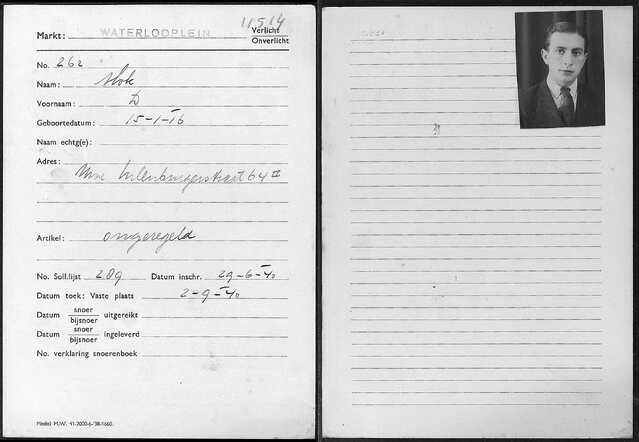 11514
Markt: WATERLOOPLEIN Verlicht
Onverlicht
No. 262
Naam: Slok
Voornaam: D
Geboortedatum: 15-1-16
Naam echtg(e):
Adres:
Nwe Uilenburgerstraat 64 II
Artikel: ongeregeld
No. Soll.lijst 289 Datum inschr. 29-6-40
Datum toek: Vaste plaats 2-9-40
Datum snoer/bijsnoer uitgereikt
Datum snoer/bijsnoer ingeleverd
No. verklaring snoerenboek
Model M.W. 41-2000-6-'38-1660.